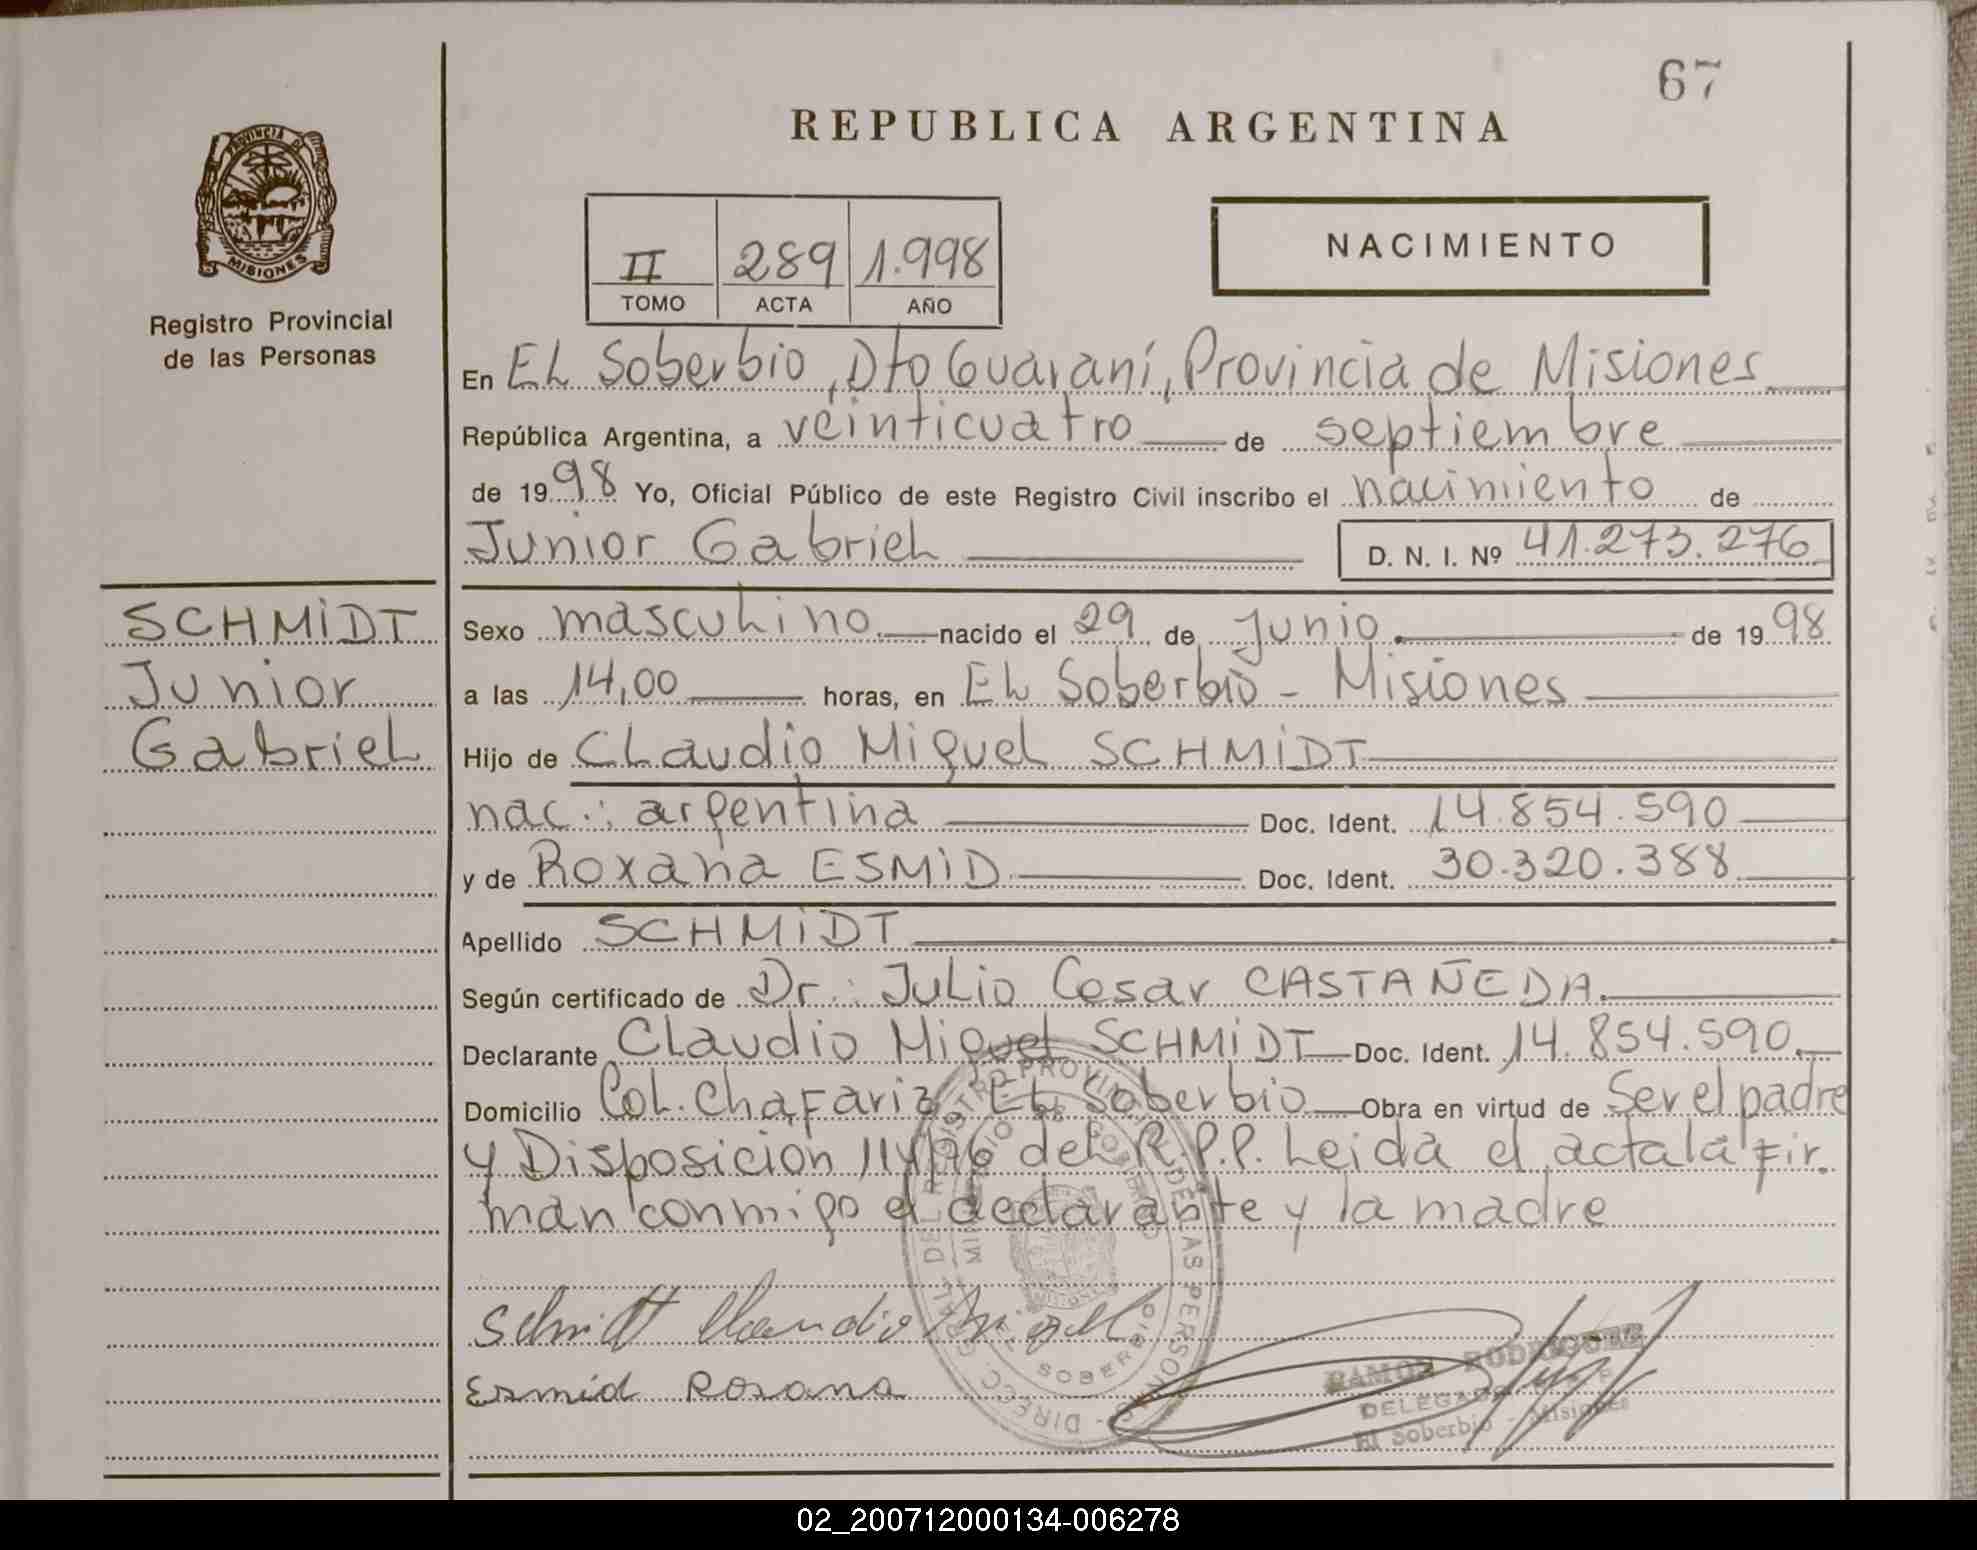 67
REPUBLICA ARGENTINA
PROVINCIA DE
MISIONES
Registro Provincial
de las Personas
II 289 1.998
TOMO ACTA AÑO
NACIMIENTO
En EL Soberbio, Dto Guaraní, Provincia de Misiones
República Argentina, a veinticuatro de septiembre
de 1998 Yo, Oficial Público de este Registro Civil inscribo el nacimiento de
Junior Gabriel D. N. I. Nº 41.273.276
SCHMIDT
Junior
Gabriel
Sexo masculino nacido el 29 de Junio de 1998
a las 14,00 horas, en EL Soberbio - Misiones
Hijo de Claudio Miguel SCHMIDT
nac.: argentina Doc. Ident. 14.854.590
y de Roxana ESMID Doc. Ident. 30.320.388
Apellido SCHMIDT
Según certificado de Dr: Julio Cesar CASTAÑEDA
Declarante Claudio Miguel SCHMIDT Doc. Ident. 14.854.590
Domicilio Col. Chafariz EL Soberbio Obra en virtud de Ser el padre
y Disposicion 114/96 del R.P.P. Leida el acta la fir.
man conmigo el declarante y la madre
Schmidt Claudio Miguel
Esmid Rosana
DIRECC. GRAL. DEL REGISTRO PROVINCIAL DE LAS PERSONAS
SOBERBIO
RAMON RODRIGUEZ
DELEGADO
El Soberbio - Misiones
02_200712000134-006278